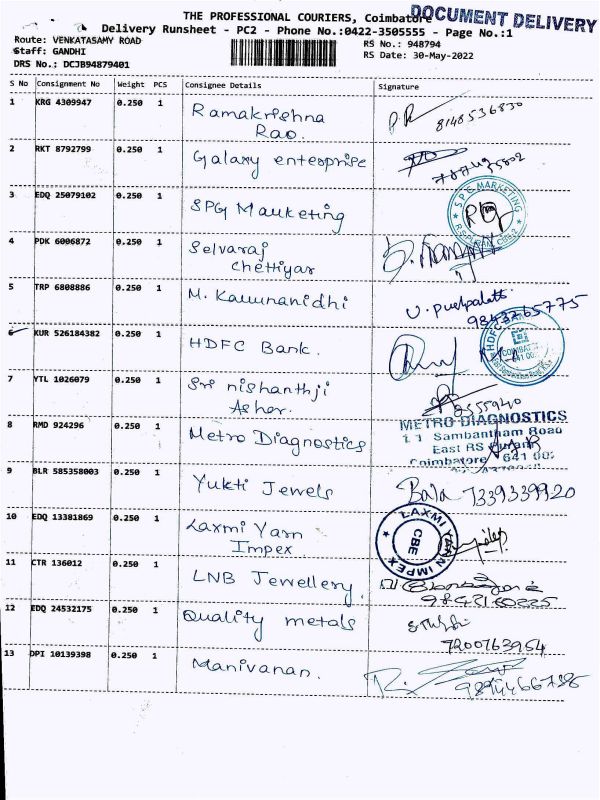 THE PROFESSIONAL COURIERS, Coimbatore
DOCUMENT DELIVERY
Delivery Runsheet - PC2 - Phone No.:0422-3505555 - Page No.:1
Route: VENKATASAMY ROAD
RS No.: 948794
Staff: GANDHI
RS Date: 30-May-2022
DRS No.: DCJB94879401
S No Consignment No Weight PCS Consignee Details Signature
1 KRG 4309947 0.250 1 Ramakrishna
Rao. 8148536830
2 RKT 8792799 0.250 1 Galaxy enteoprise
3 EDQ 25079102 0.250 1 SPG Mauketing
S P G MARKETING
4 PDK 6006872 0.250 1 Selvaraj
Chettiyar
5 TRP 6808886 0.250 1 M. Kaumanidhi
9843765775
6 KUR 526184382 0.250 1 HDFC Bank.
7 YTL 1026079 0.250 1 Sri nishanthji
Asher.
8 RMD 924296 0.250 1 Metro Diagnostics
METRO DIAGNOSTICS
Sambantham Road
East RS Puram
Coimbatore 641 002
9 BLR 585358003 0.250 1 Yukti Jewels Bala 7339339920
10 EDQ 13381869 0.250 1 Laxmi Yarn
Impex.
LAXMI YARN IMPEX
CBE
11 CTR 136012 0.250 1 LNB Jewellery.
12 EDQ 24532175 0.250 1 Quality metals
7200763954
13 DPI 10139398 0.250 1 Manivanan.